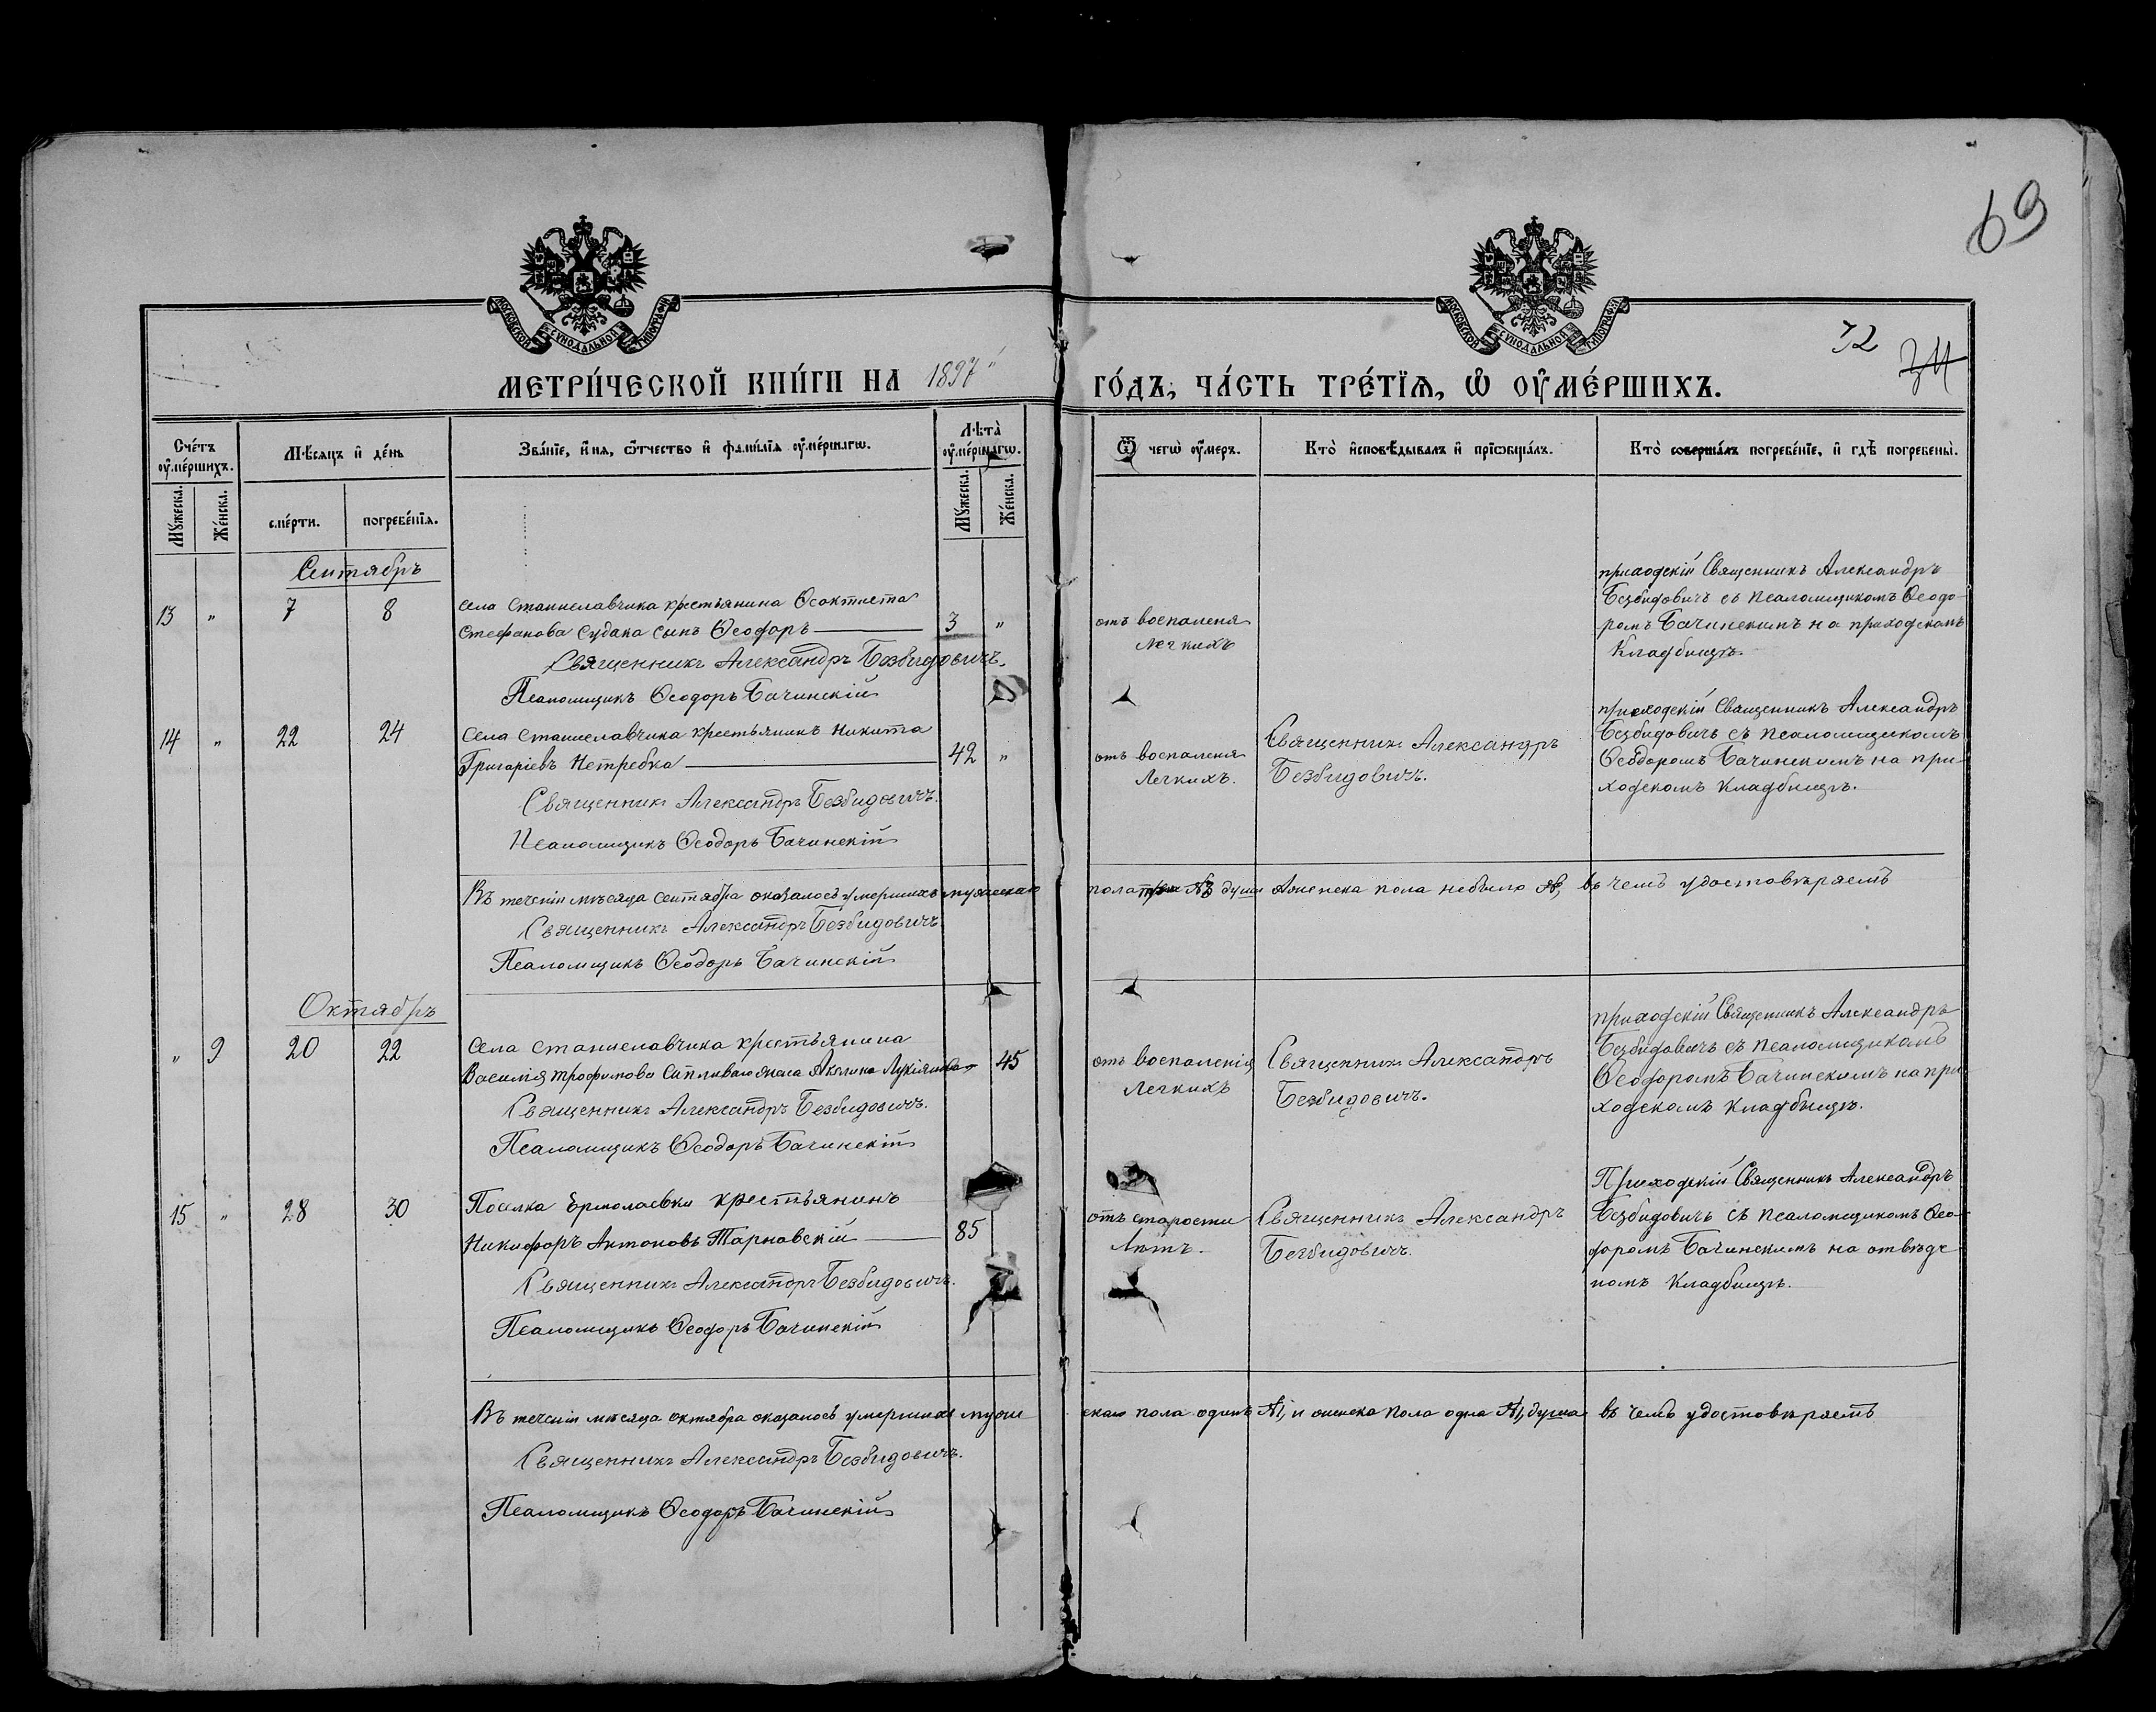 69
МОСКОВСКОЙ СѴНОДАЛЬНОЙ ТИПОГРАФІИ
МОСКОВСКОЙ СѴНОДАЛЬНОЙ ТИПОГРАФІИ
32
МЕТРИ́ЧЕСКОЙ КНИ́ГИ НА 1897 ГО́ДЪ, ЧА́СТЬ ТРЕ́ТІЯ, Ѡ ОУ҆МЕ́РШИХЪ.
Сче́тъ оу҆ме́ршихъ.
Мѣ́сяцъ и҆ де́нь
Зва́ніе, и҆́мя, ѻ҆́тчество и҆ фами́лія оу҆ме́ршагѡ.
Лѣта̀ оу҆ме́ршагѡ.
Ѿ чегѡ̀ оу҆́меръ.
Кто̀ и҆сповѣ́дывалъ и҆ пріѡбща́лъ.
Кто̀ соверша́лъ погребе́ніе, и҆ гдѣ̀ погребены̀.
Му́жеска.
Же́нска.
сме́рти.
погребе́нія.
Му́жеска.
Же́нска.
Сентябрь
13 " 7 8
села Станиславчика крестьянина Ѳеоктиста
Стефанова Судака сынъ Ѳеодоръ
3 "
Священникъ Александръ Безбидовичъ.
Псаломщикъ Ѳеодоръ Бачинскій
отъ воспаленя
легкихъ
приходскій Священникъ Александръ
Безбидовичъ съ псаломщикомъ Ѳеодо-
ромъ Бачинскимъ на приходскомъ
Кладбищѣ.
14 " 22 24
Села Станиславчика крестьянинъ Никита
Григоріевъ Нетребка
42 "
Священникъ Александръ Безбидовичъ.
Псаломщикъ Ѳеодоръ Бачинскій
отъ воспаленя
Легкихъ.
Священникъ Александръ
Безбидовичъ.
приходскій Священникъ Александръ
Безбидовичъ съ псаломщикомъ
Ѳеодоромъ Бачинскимъ на при-
ходскомъ Кладбищѣ.
Въ теченіи мѣсяца сентября оказалось умершихъ мужескаго пола души женска пола небыло въ чемъ удостовѣряемъ
Священникъ Александръ Безбидовичъ
Псаломщикъ Ѳеодоръ Бачинскій
Октябрь
" 9 20 22
Села Станиславчика крестьянина
Василія Трофимова жена Акилина Лукіянова
45
Священникъ Александръ Безбидовичъ.
Псаломщикъ Ѳеодоръ Бачинскій
отъ воспаленія
Легкихъ
Священникъ Александръ
Безбидовичъ.
приходскій Священникъ Александръ
Безбидовичъ съ псаломщикомъ
Ѳеодоромъ Бачинскимъ на при-
ходскомъ кладбищѣ.
15 " 28 30
Поселка Ермолаевки крестьянинъ
Никифоръ Антоновъ Тарновскій
85
Священникъ Александръ Безбидовичъ.
Псаломщикъ Ѳеодоръ Бачинскій
отъ старости
Лѣтъ.
Священникъ Александръ
Безбидовичъ.
Приходскій Священникъ Александръ
Безбидовичъ съ псаломщикомъ Ѳео-
доромъ Бачинскимъ на отведе-
номъ Кладбищѣ.
Въ теченіи мѣсяца октября оказалось умершихъ муже- скаго пола одинъ №1, и женска пола одна №1, душа въ чемъ удостовѣряемъ
Священникъ Александръ Безбидовичъ.
Псаломщикъ Ѳеодоръ Бачинскій